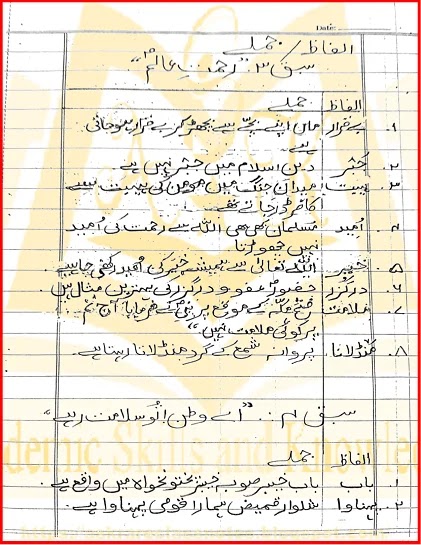 Date:
الفاظ/جملے
سبق ۳: "رحمتِ عالمؐ"
الفاظ جملے
۱. بےقرار ماں اپنے بچے سے بچھڑ کر بے قرار ہو جاتی
ہے۔
۲. جبر دین اسلام میں جبر نہیں ہے
۳. ہیبت میدان جنگ میں کی ہیبت سے
کافر ڈر جاتے تھے۔
۴. اُمید مسلمان کبھی بھی اللہ سے رحمت کی اُمید
نہیں چھوڑتا
۵. خیر اللہ تعالیٰ سے ہمیشہ خیر کی اُمید رکھنی چاہیے
۶. درگزر حضورؐ عفو و درگزر کی بہترین مثال ہیں
۷. ملامت فتح مکہ کے موقع پر نبیؐ نے فرمایا: آج تم
پر کوئی ملامت نہیں"
۸. منڈلانا پروانہ شمع کے گرد منڈلاتا رہتا ہے۔
سبق ۴: "اے وطن تُو سلامت رہے"
الفاظ جملے
۱. باب باب خیبر صوبہ خیبر پختونخواہ میں واقع ہے۔
۲. پہناوا شلوار قمیض ہمارا قومی پہناوا ہے۔
Academic Skills and Knowledge